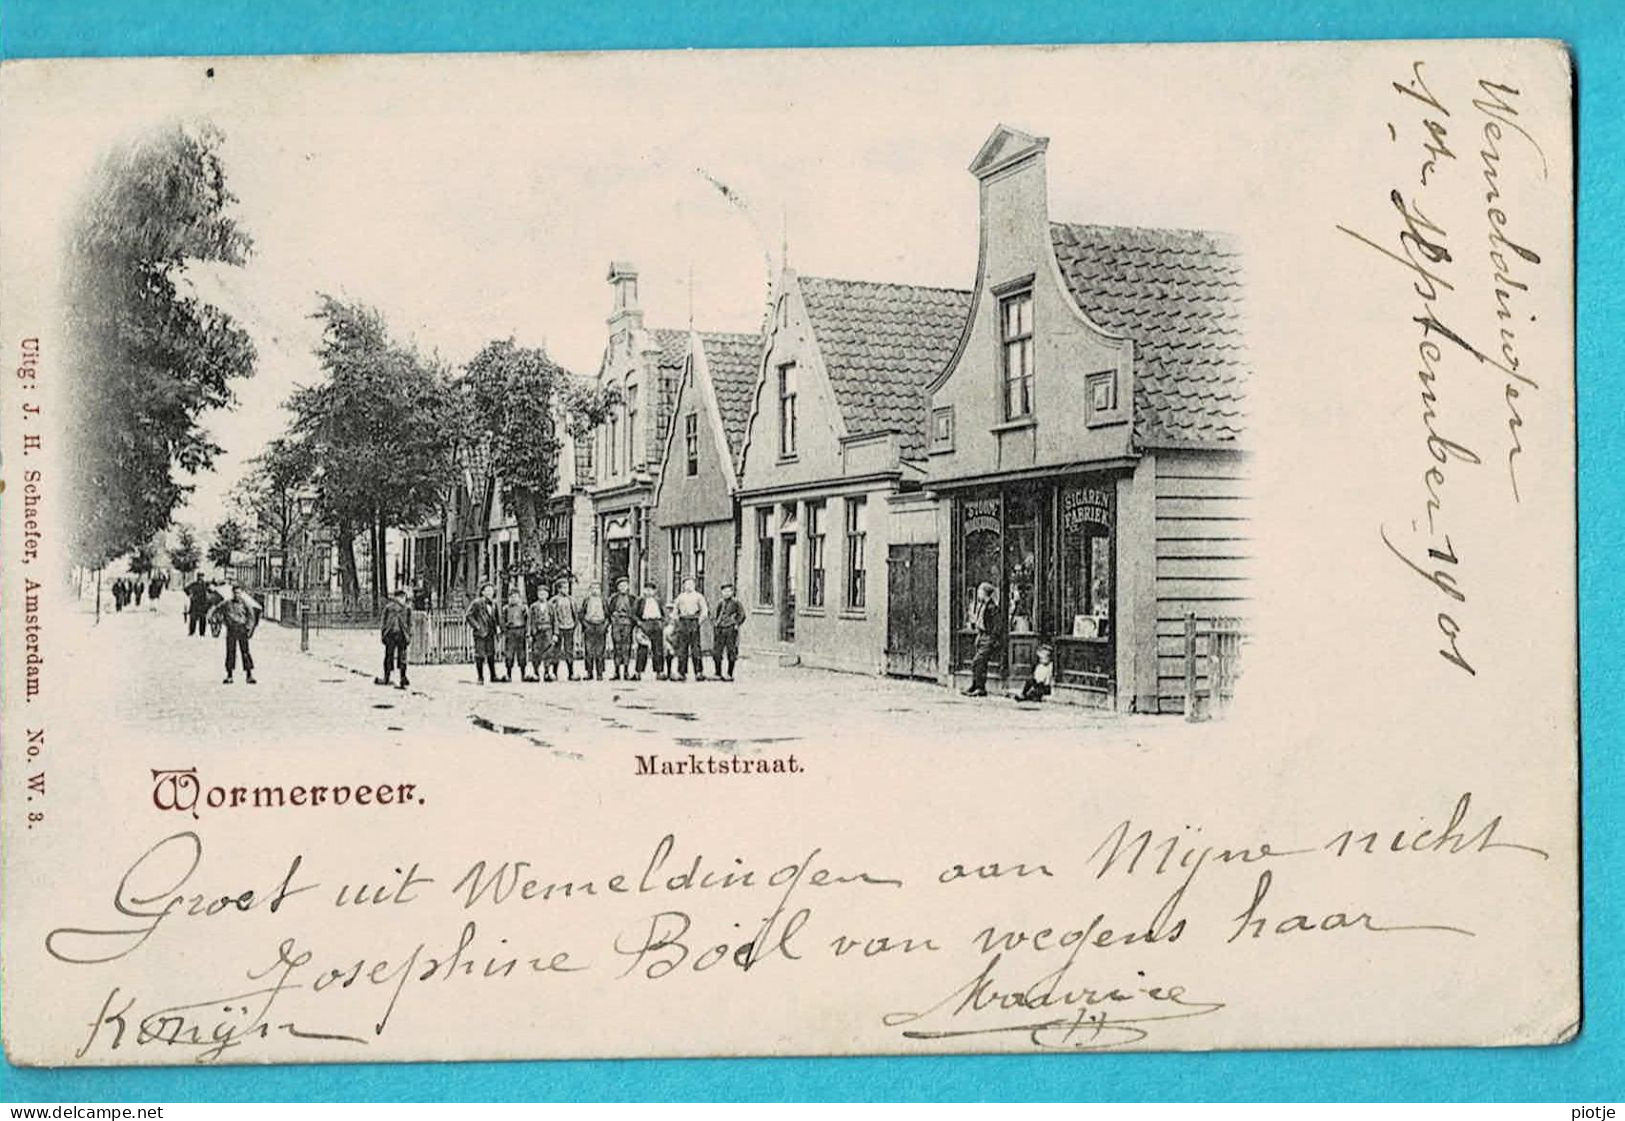 Wemeldingen
1ste September 1901
Uitg: J. H. Schaefer, Amsterdam. No. W. 3.
STOOM
SIGAREN
FABRIEK
Marktstraat.
Wormerveer.
Groet uit Wemeldingen aan Mijne nicht
Josephine Boël van wegens haar
Konijn Maurice
www.delcampe.net
piotje